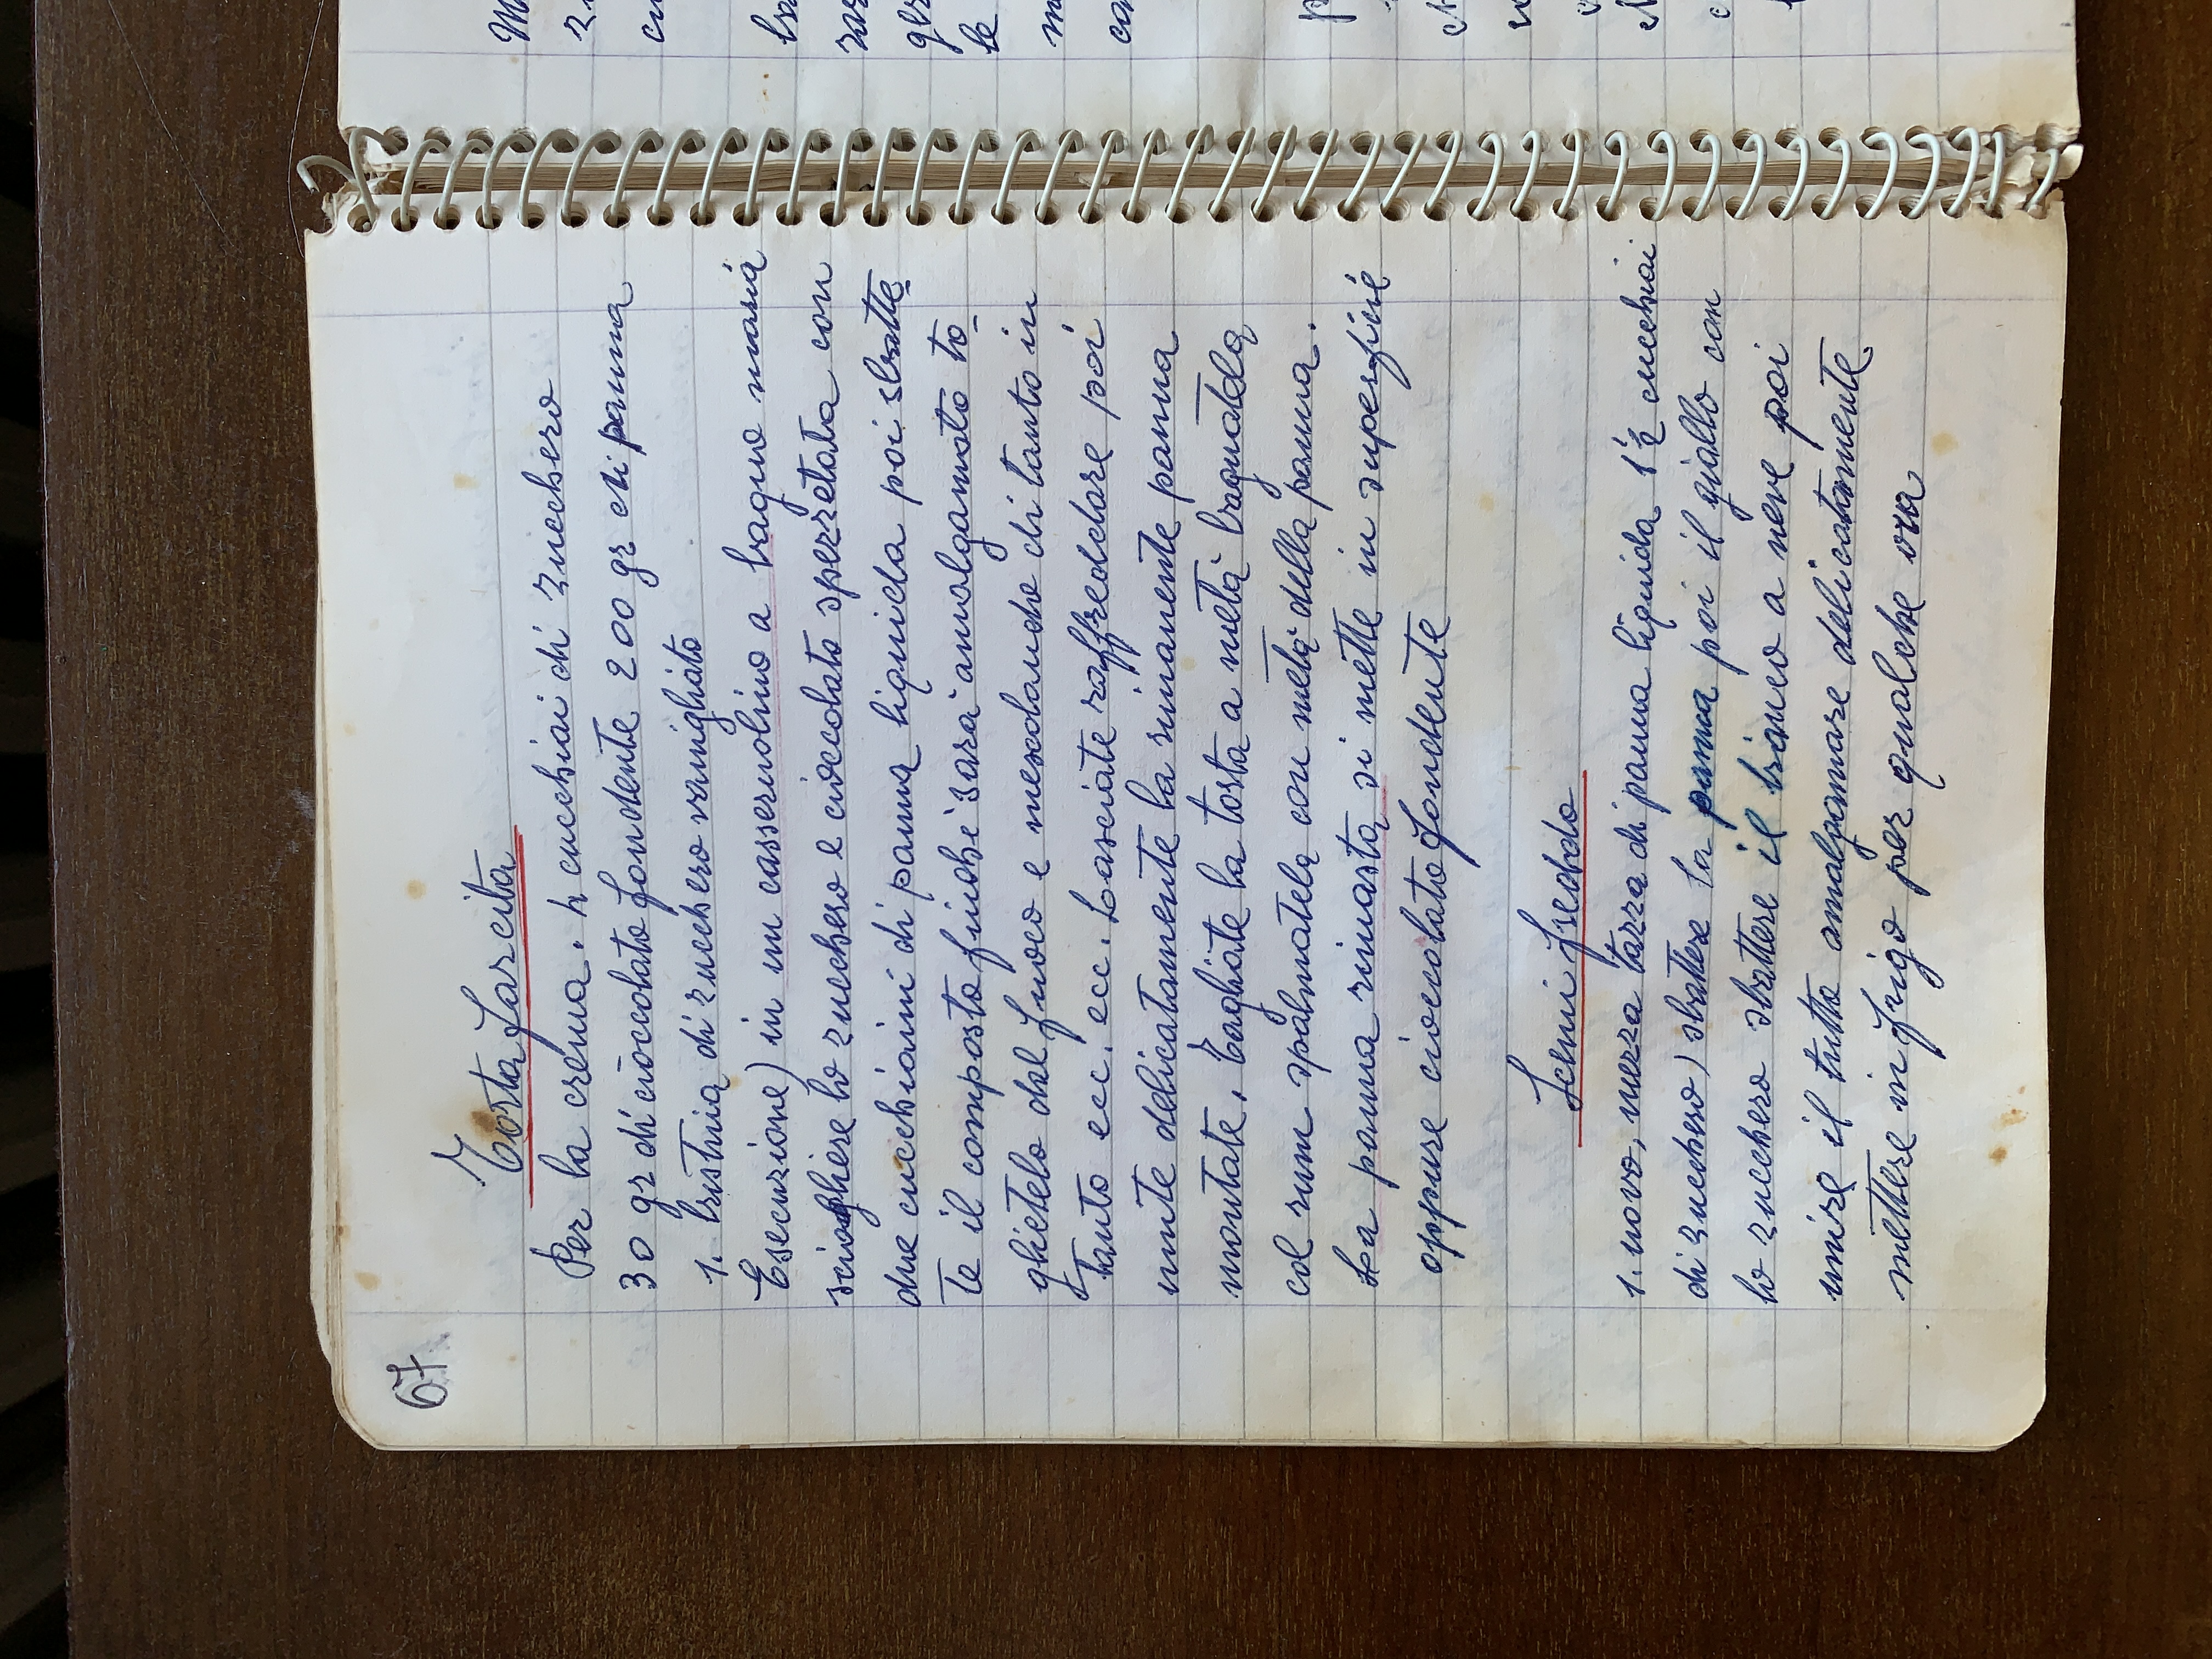 67
Torta farcita
Per la crema. 4 cucchiai di zucchero
30 gr di cioccolato fondente 200 gr di panna
1. bustina di zucchero vanigliato
Esecuzione) in un casseruolino a bagno maria
sciogliere lo zucchero e cioccolato spezzetata con
due cucchiaini di panna liquida poi sbatte_
te il composto finchè sarà amalgamato to_
glietelo dal fuoco e mescolando di tanto in
tanto ecc. ecc. Lasciate raffreddare poi
unite delicatamente la rimanente panna
montate. Tagliate la torta a metà bagnatela
col rum spalmatela con metà della panna.
La panna rimasta si mette in superficie
oppure cioccolato fondente
Semi freddo
1. uovo, mezza tazza di panna liquida 1½ cucchiai
di zucchero) sbattere la panna poi il giallo con
lo zucchero sbattere il bianco a neve poi
unire il tutto amalgamare delicatamente
mettere in frigo per qualche ora